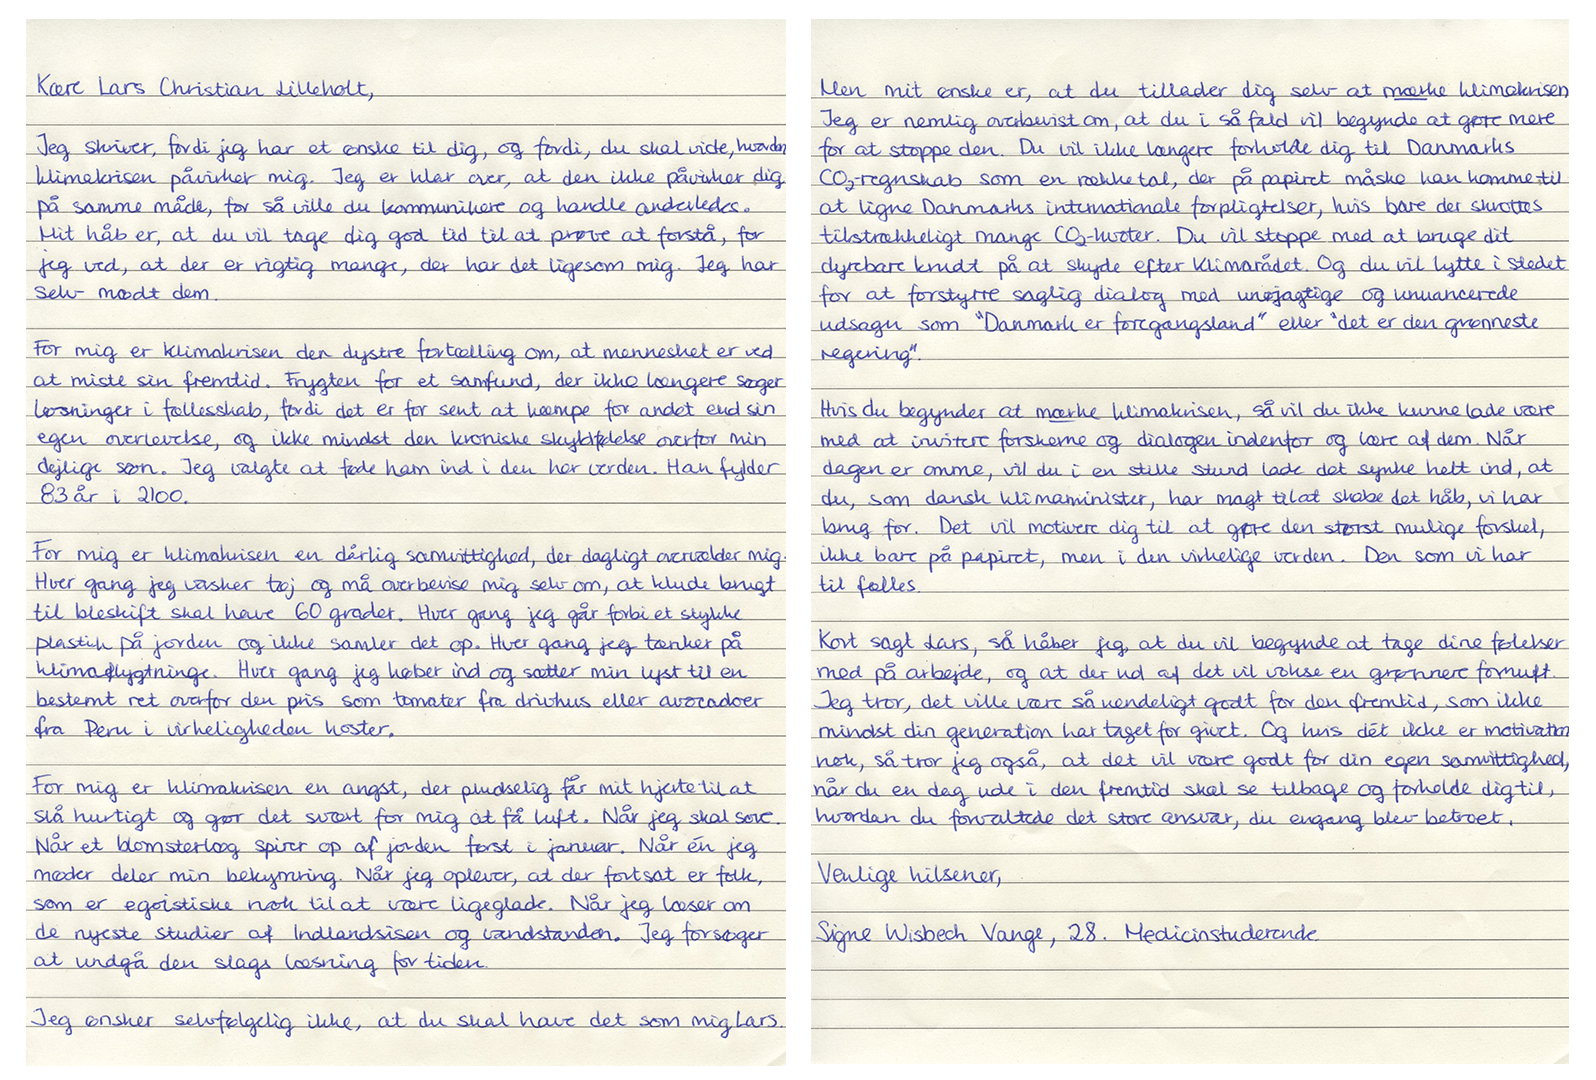 Kære Lars Christian Lilleholt,
Jeg skriver, fordi jeg har et ønske til dig, og fordi, du skal vide, hvordan
klimakrisen påvirker mig. Jeg er klar over, at den ikke påvirker dig
på samme måde, for så ville du kommunikere og handle anderledes.
Mit håb er, at du vil tage dig god tid til at prøve at forstå, for
jeg ved, at der er rigtig mange, der har det ligesom mig. Jeg har
selv mødt dem.
For mig er klimakrisen den dystre fortælling om, at mennesket er ved
at miste sin fremtid. Frygten for et samfund, der ikke længere søger
løsninger i fællesskab, fordi det er for sent at kæmpe for andet end sin
egen overlevelse, og ikke mindst den kroniske skyldfølelse overfor min
dejlige søn. Jeg valgte at føde ham ind i den her verden. Han fylder
83 år i 2100.
For mig er klimakrisen en dårlig samvittighed, der dagligt overvælder mig.
Hver gang jeg vasker tøj og må overbevise mig selv om, at klude brugt
til bleskift skal have 60 grader. Hver gang jeg går forbi et stykke
plastik på jorden og ikke samler det op. Hver gang jeg tænker på
klimaflygtninge. Hver gang jeg køber ind og sætter min lyst til en
bestemt ret overfor den pris som tomater fra drivhus eller avocadoer
fra Peru i virkeligheden koster.
For mig er klimakrisen en angst, der pludselig får mit hjerte til at
slå hurtigt og gør det svært for mig at få luft. Når jeg skal sove.
Når et blomsterløg spirer op af jorden først i januar. Når én jeg
møder deler min bekymring. Når jeg oplever, at der fortsat er folk,
som er egoistiske nok til at være ligeglade. Når jeg læser om
de nyeste studier af Indlandsisen og vandstanden. Jeg forsøger
at undgå den slags læsning for tiden.
Jeg ønsker selvfølgelig ikke, at du skal have det som mig Lars.
Men mit ønske er, at du tillader dig selv at mærke klimakrisen
Jeg er nemlig overbevist om, at du i så fald vil begynde at gøre mere
for at stoppe den. Du vil ikke længere forholde dig til Danmarks
CO₂-regnskab som en række tal, der på papiret måske kan komme til
at ligne Danmarks internationale forpligtelser, hvis bare der skrottes
tilstrækkeligt mange CO₂-kvoter. Du vil stoppe med at bruge dit
dyrebare krudt på at skyde efter Klimarådet. Og du vil lytte i stedet
for at forstyrre saglig dialog med unøjagtige og unuancerede
udsagn som "Danmark er foregangsland" eller "det er den grønneste
regering".
Hvis du begynder at mærke klimakrisen, så vil du ikke kunne lade være
med at invitere forskerne og dialogen indenfor og lære af dem. Når
dagen er omme, vil du i en stille stund lade det synke helt ind, at
du, som dansk klimaminister, har magt til at skabe det håb, vi har
brug for. Det vil motivere dig til at gøre den størst mulige forskel,
ikke bare på papiret, men i den virkelige verden. Den som vi har
til fælles.
Kort sagt Lars, så håber jeg, at du vil begynde at tage dine følelser
med på arbejde, og at der ud af det vil vokse en grønnere fornuft.
Jeg tror, det ville være så uendeligt godt for den fremtid, som ikke
mindst din generation har taget for givet. Og hvis dét ikke er motivation
nok, så tror jeg også, at det vil være godt for din egen samvittighed,
når du en dag ude i den fremtid skal se tilbage og forholde dig til,
hvordan du forvaltede det store ansvar, du engang blev betroet.
Venlige hilsener,
Signe Wisbech Vange, 28. Medicinstuderende.